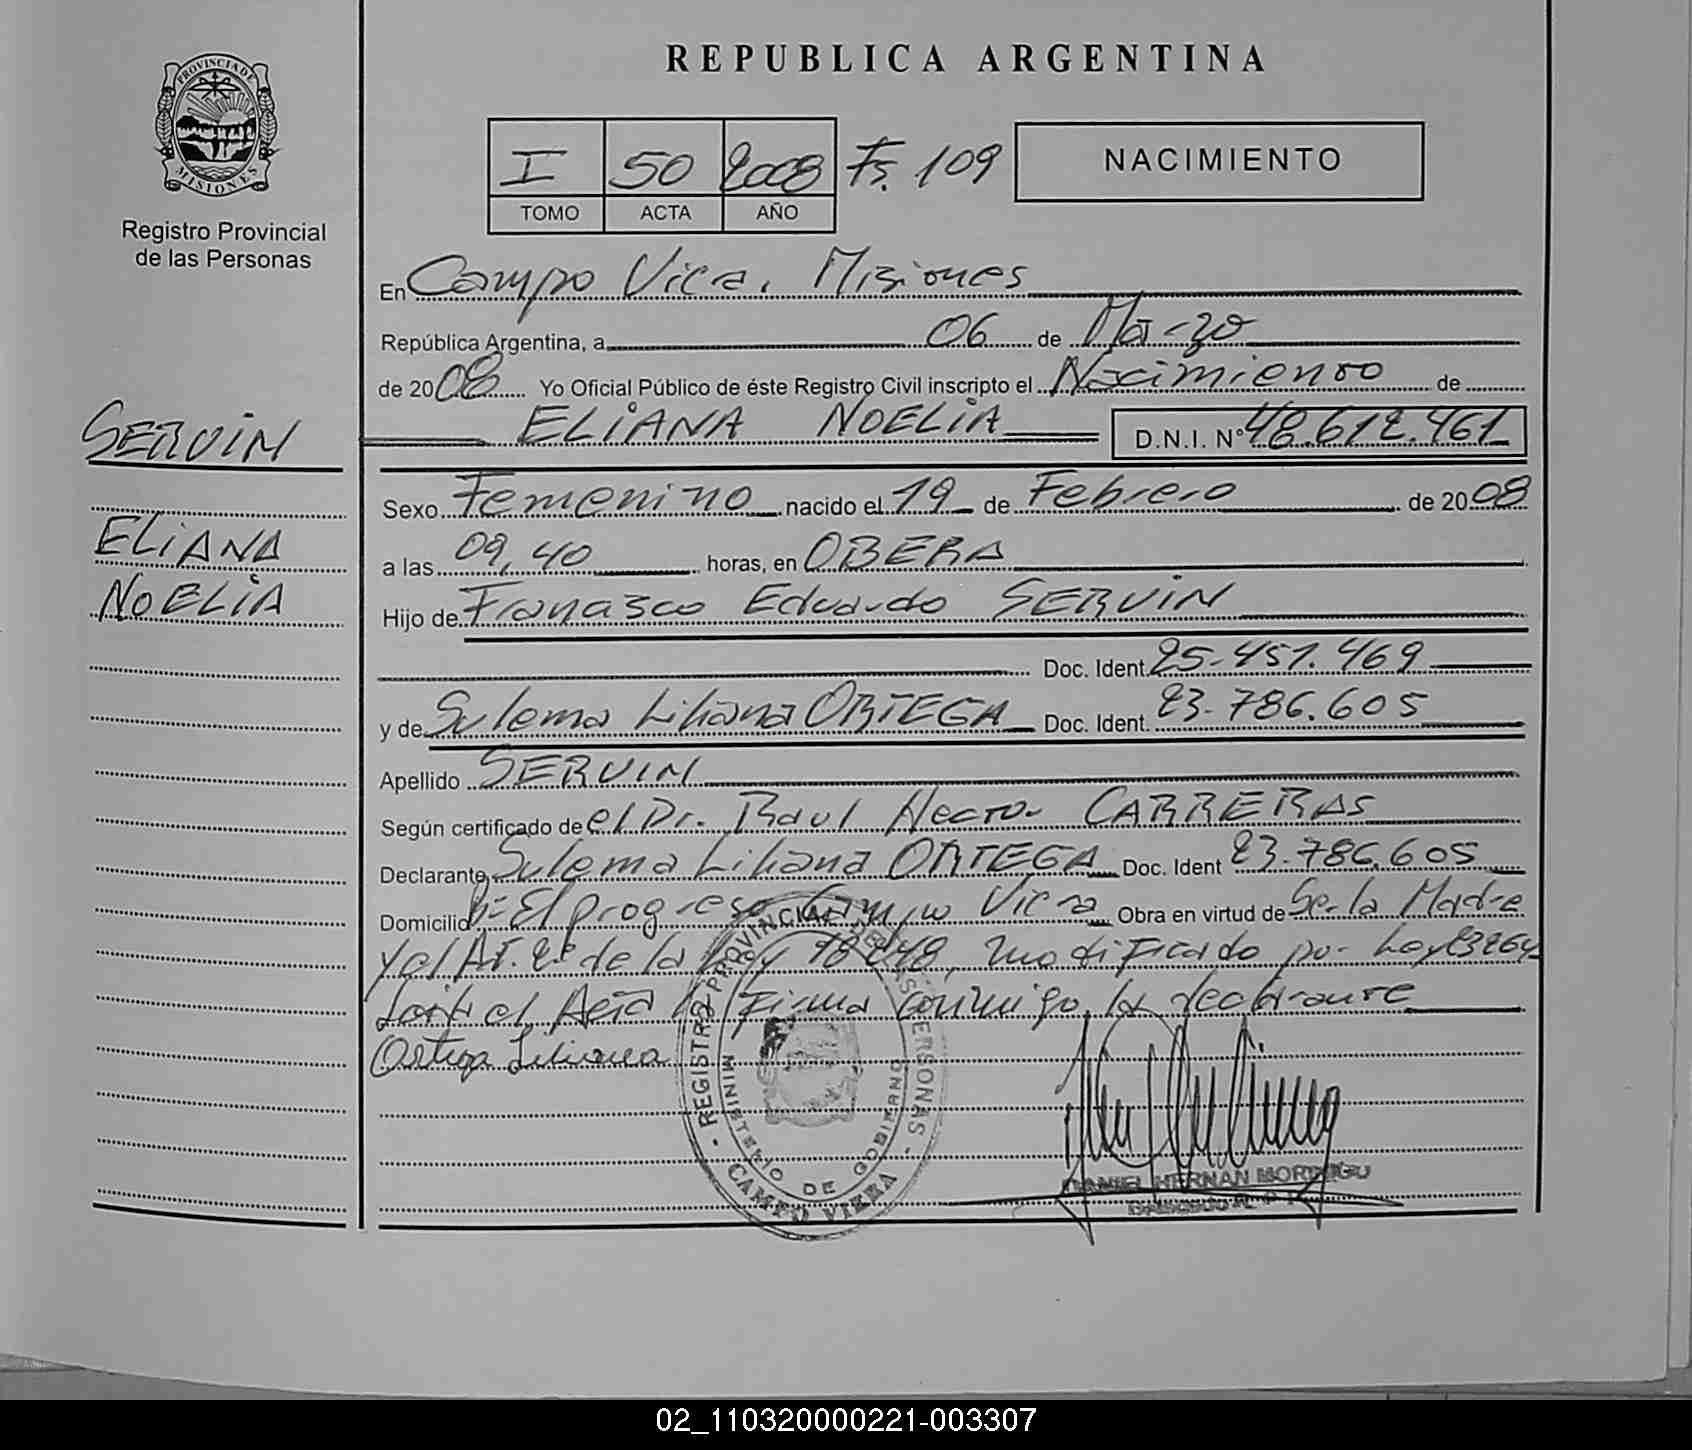 REPUBLICA ARGENTINA
PROVINCIA DE MISIONES
Registro Provincial
de las Personas
I 50 2008 Fs. 109
TOMO ACTA AÑO
NACIMIENTO
En Campo Viera. Misiones
República Argentina, a 06 de Marzo
de 2008 Yo Oficial Público de éste Registro Civil inscripto el Nacimiento de
ELIANA NOELIA D.N.I. Nº 48.612.461
SERVIN
ELIANA
NOELIA
Sexo Femenino nacido el 19 de Febrero de 2008
a las 09,40 horas, en OBERA
Hijo de Francisco Eduardo SERVIN
Doc. Ident. 25.451.469
y de Sulema Liliana ORTEGA Doc. Ident. 23.786.605
Apellido SERVIN
Según certificado de el Dr. Raul Hector CARRERAS
Declarante Sulema Liliana ORTEGA Doc. Ident 23.786.605
Domicilio Bº El progreso Campo Viera Obra en virtud de Ser la Madre
y el Art. 2º de la Ley 18248, modificado por Ley 23264
el Acta la Firma conmigo, la declarante
Ortega Liliana
REGISTRO PROVINCIAL DE LAS PERSONAS
MINISTERIO DE GOBIERNO
CAMPO VIERA
DANIEL HERNAN
02_110320000221-003307